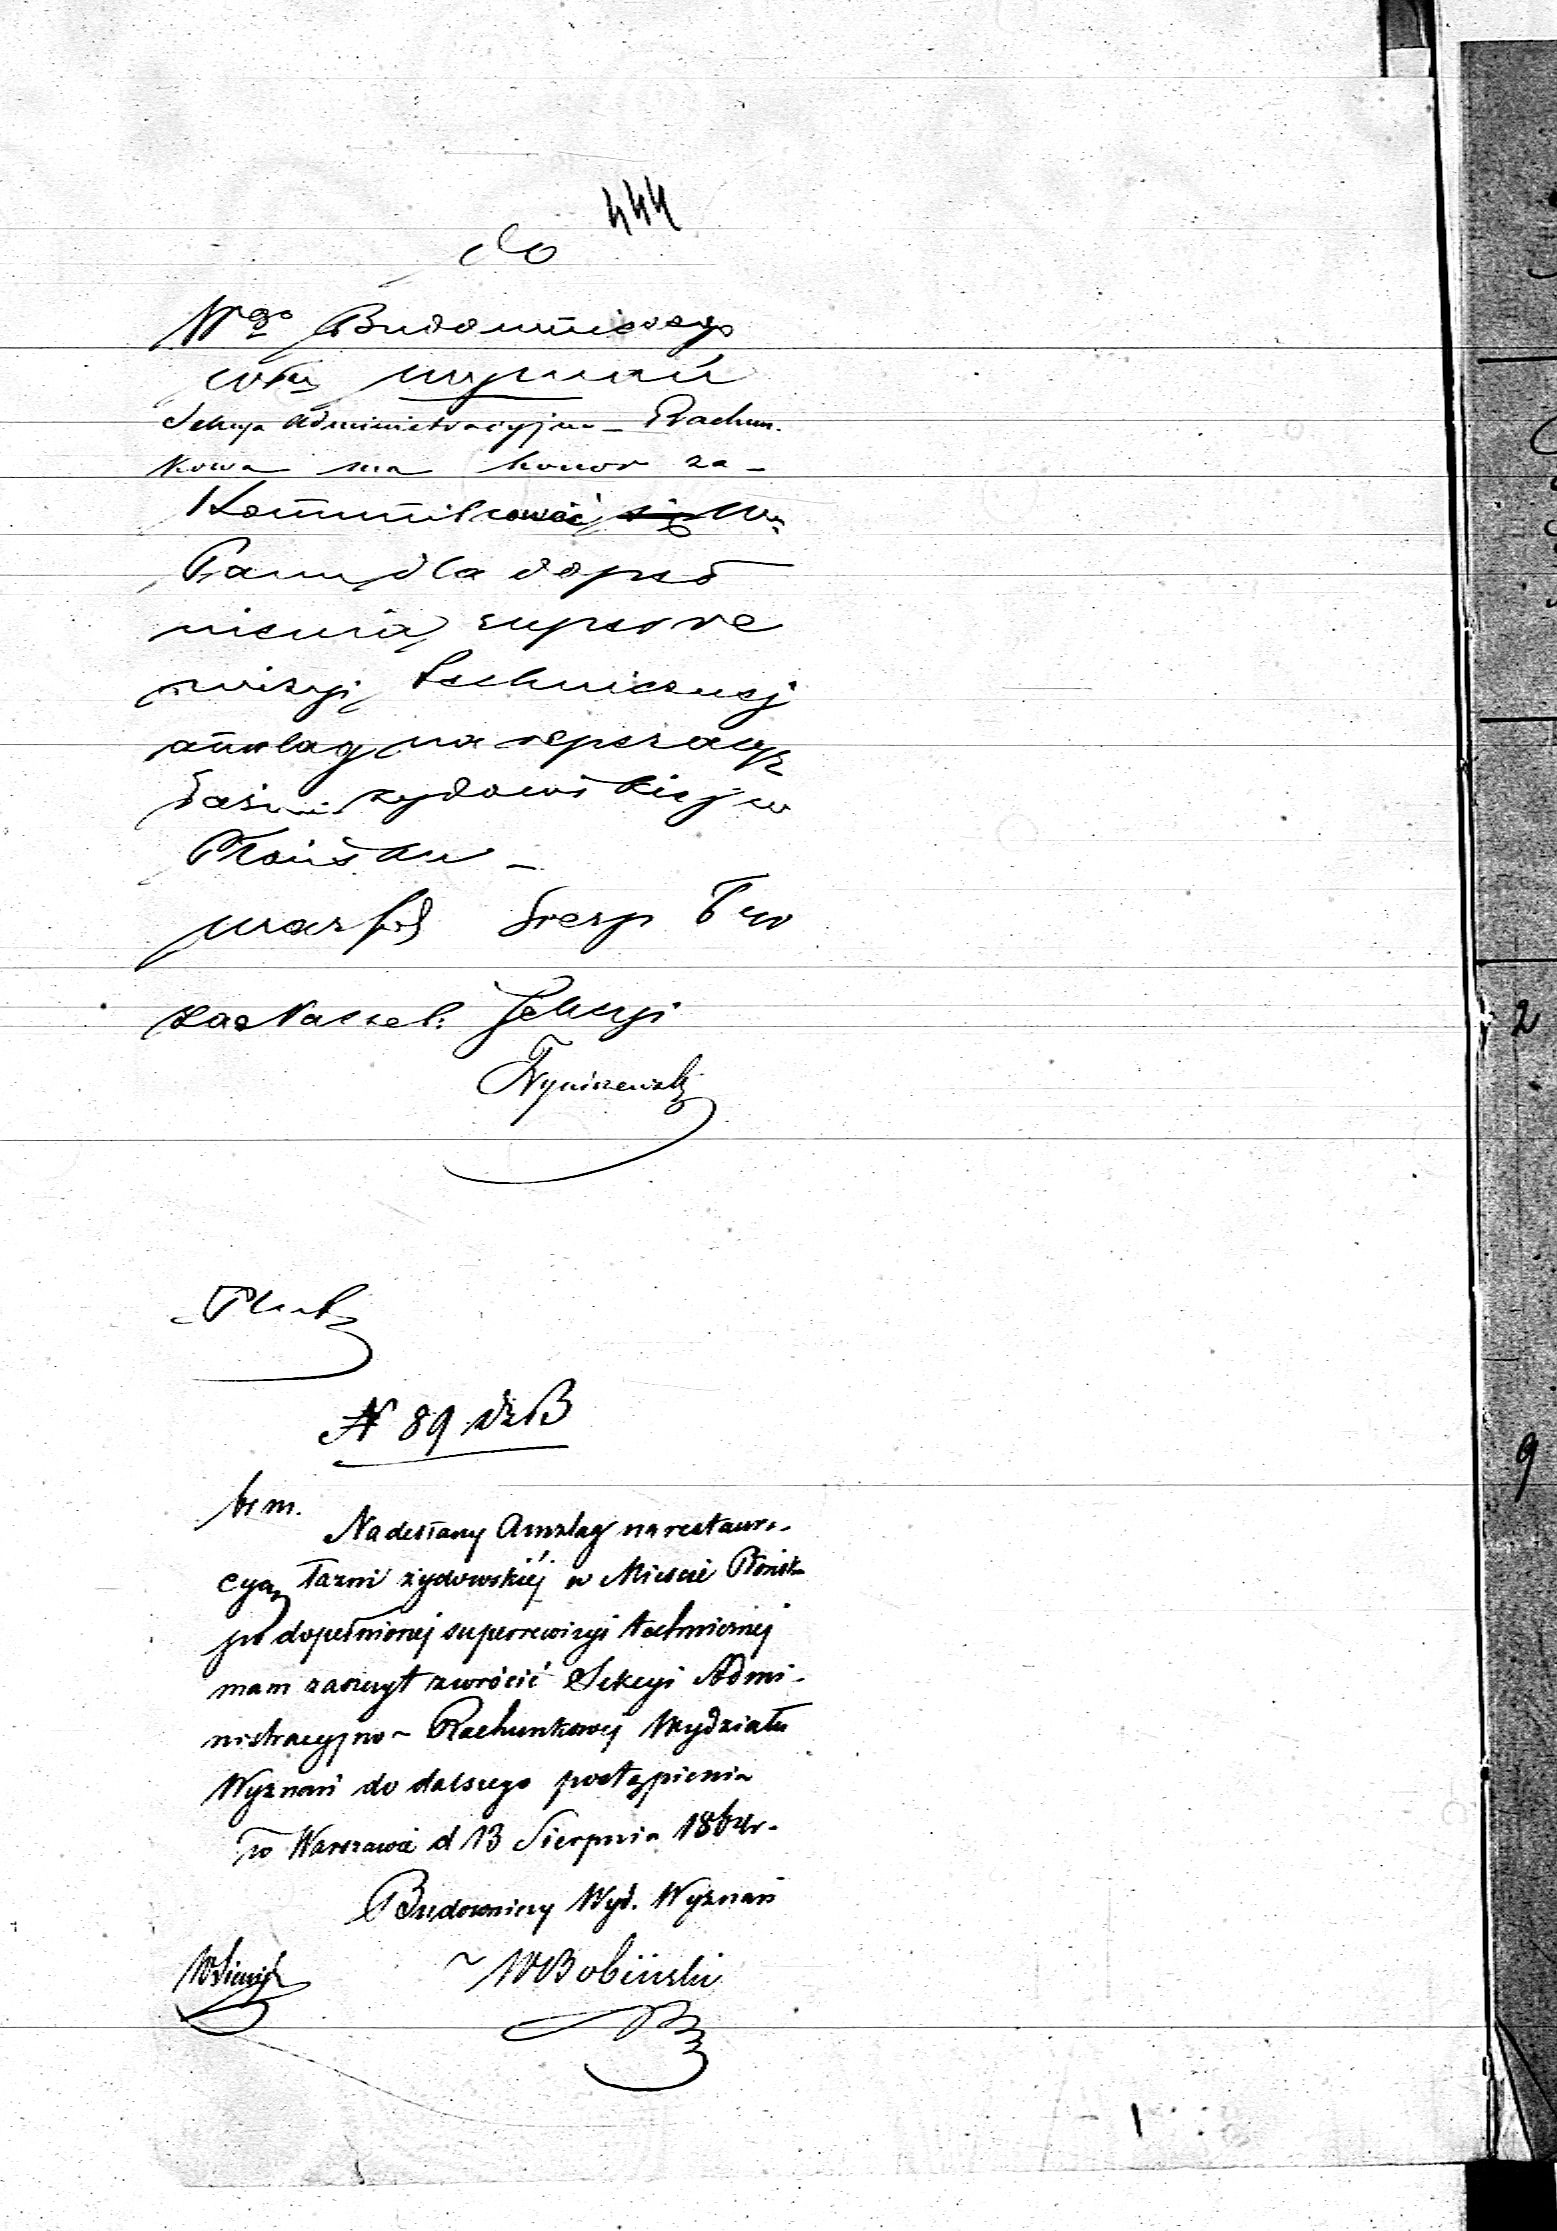 444
Do
Wgo Budowniczego
Wyznań
Sekcya Administracyjno-Rachun-
kowa ma honor za-
kommunikować się W.
Panu dla dopeł
nienia superre
wizyi technicznej
anszlag na reperacyę
Łaźni żydowskiej w
Płońsku -
Sierp
za Naczel: Sekcyi
N 89 Dz B
br m.
Nadesłany Anszlag na restaura-
cyą łazni żydowskiéj w Mieście Płońsku
po dopełnionéj superrewizyi technicznéj
mam zaszczyt zwrócić Sekcyi Admi-
nistracyjno-Rachunkowéj Wydziału
Wyznań do dalszego postąpienia
w Warszawie d 13 Sierpnia 1864r.
Budowniczy Wyd. Wyznań
W Bobiński
2
9